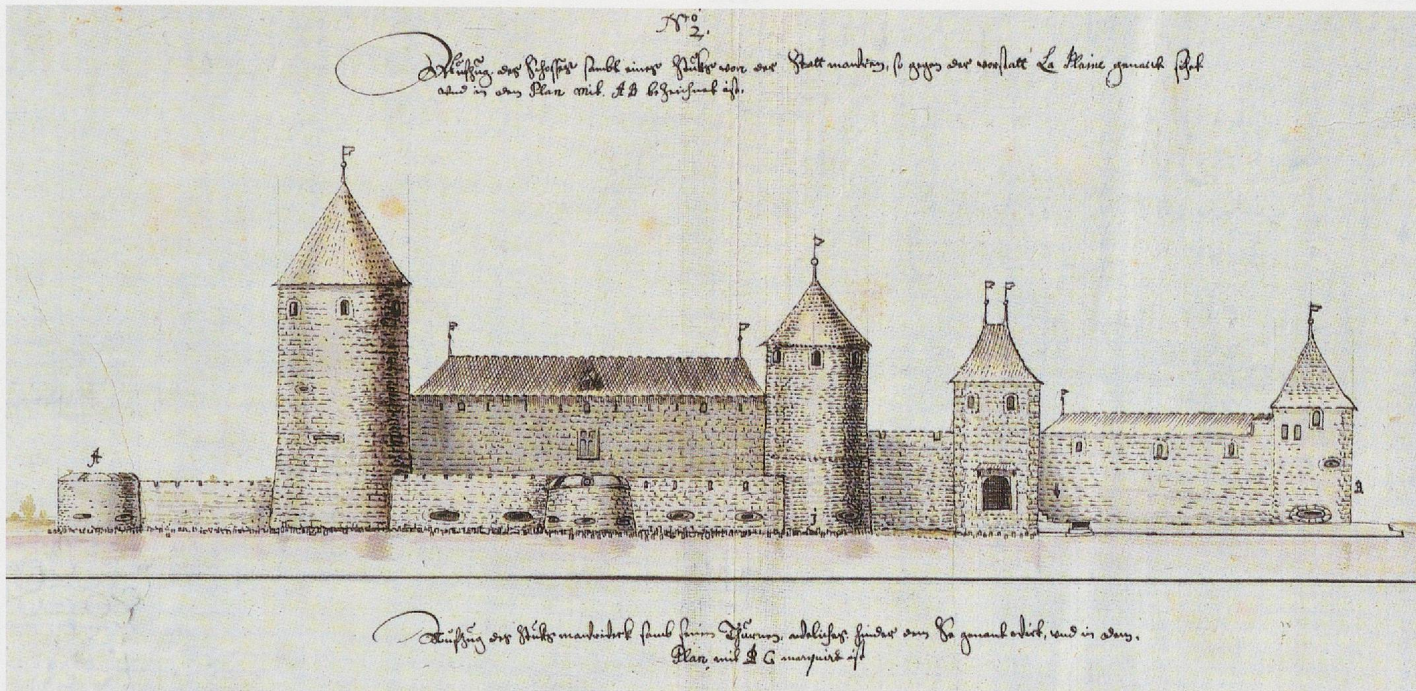 No 2.
Auffzug des Schosses sambt eines Stuks von der Statt mauren, so gegen der vorstatt La Plaine genant sihet
und in dem Plan mit AB bezeichnet ist.
A
B
Auffzug des Stuks maurwerk samb seinen Thürnen, welches hinder dem genant wirt, und in dem
Plan mit B C marquirt ist